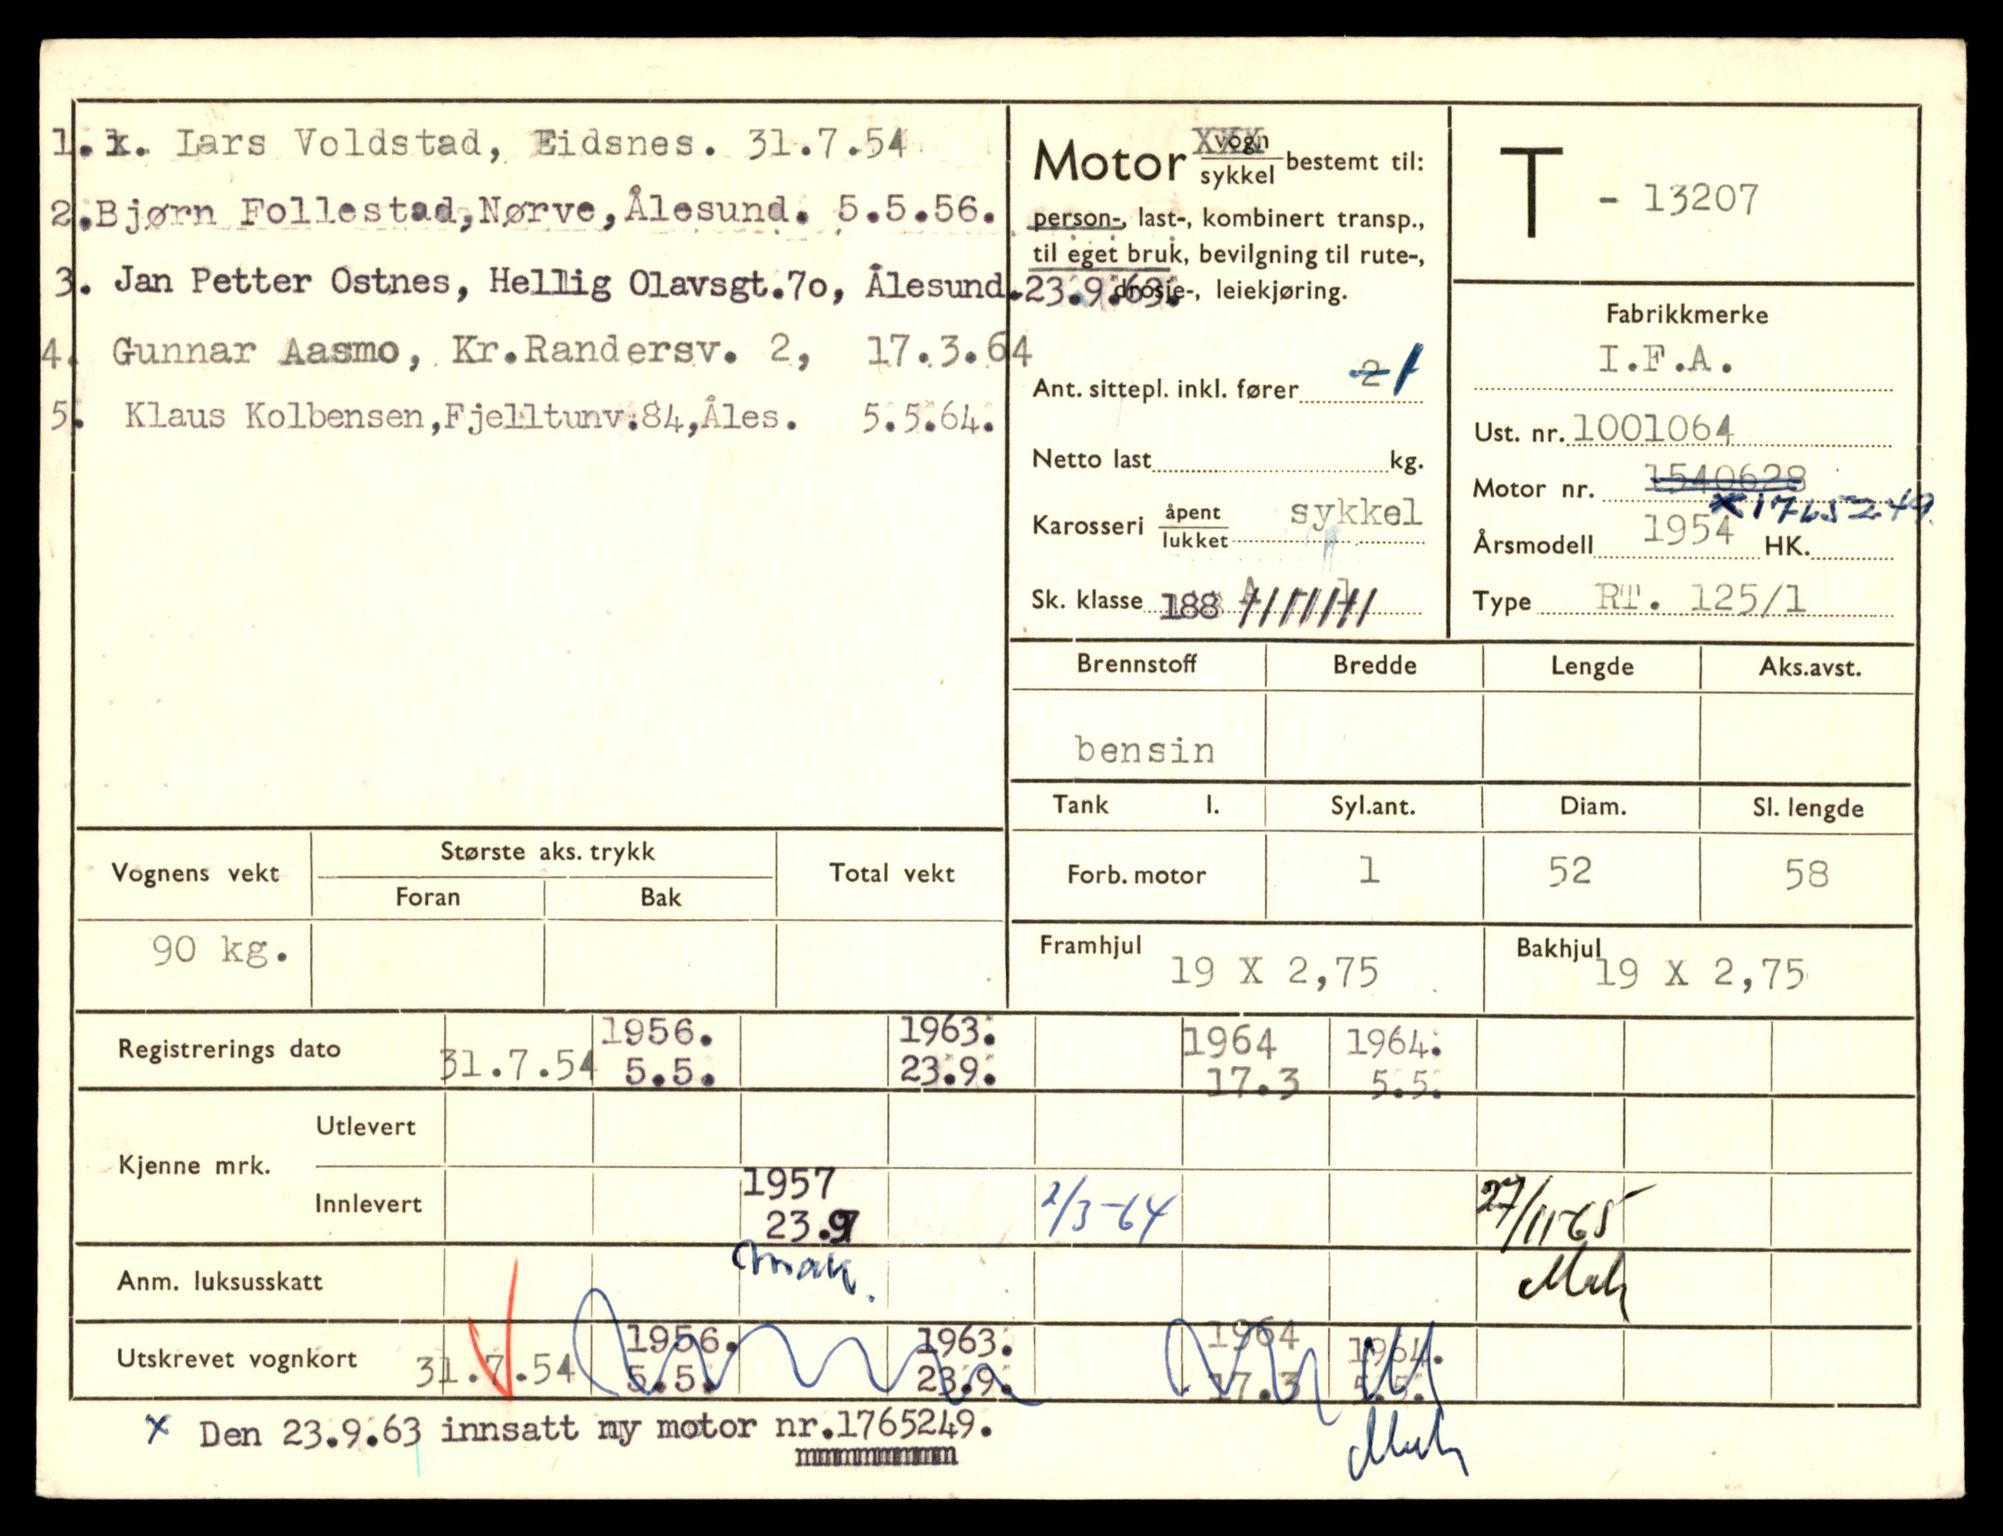 1. x. Lars Voldstad, Eidsnes. 31.7.54
2. Bjørn Follestad, Nørve, Ålesund. 5.5.56.
3. Jan Petter Ostnes, Hellig Olavsgt.7o, Ålesund. 23.9.63.
4. Gunnar Aasmo, Kr.Randersv. 2, 17.3.64
5. Klaus Kolbensen,Fjelltunv.84,Åles. 5.5.64.
Motor vogn XXX
sykkel bestemt til:
person-, last-, kombinert transp.,
til eget bruk, bevilgning til rute-,
drosje-, leiekjøring.
Ant. sittepl. inkl. fører 2 1
Netto last kg.
Karosseri åpent sykkel
lukket
Sk. klasse 188
T - 13207
Fabrikkmerke
I.F.A.
Ust. nr. 1001064
Motor nr. 1540628
x 1765249
Årsmodell 1954 HK.
Type RT. 125/1
Brennstoff Bredde Lengde Aks.avst.
bensin
Tank l. Syl.ant. Diam. Sl. lengde
Forb. motor 1 52 58
Framhjul 19 X 2,75 Bakhjul 19 X 2,75
Vognens vekt Største aks. trykk Total vekt
Foran Bak
90 kg.
Registrerings dato 31.7.54 1956. 5.5. 1963. 23.9. 1964 17.3 1964. 5.5.
Kjenne mrk. Utlevert
Innlevert 1957 23.9 2/3-64 27/11-65
Anm. luksusskatt
Utskrevet vognkort 31.7.54 1956. 5.5. 1963. 23.9. 1964 17.3 1964. 5.5.
x Den 23.9.63 innsatt ny motor nr.1765249.